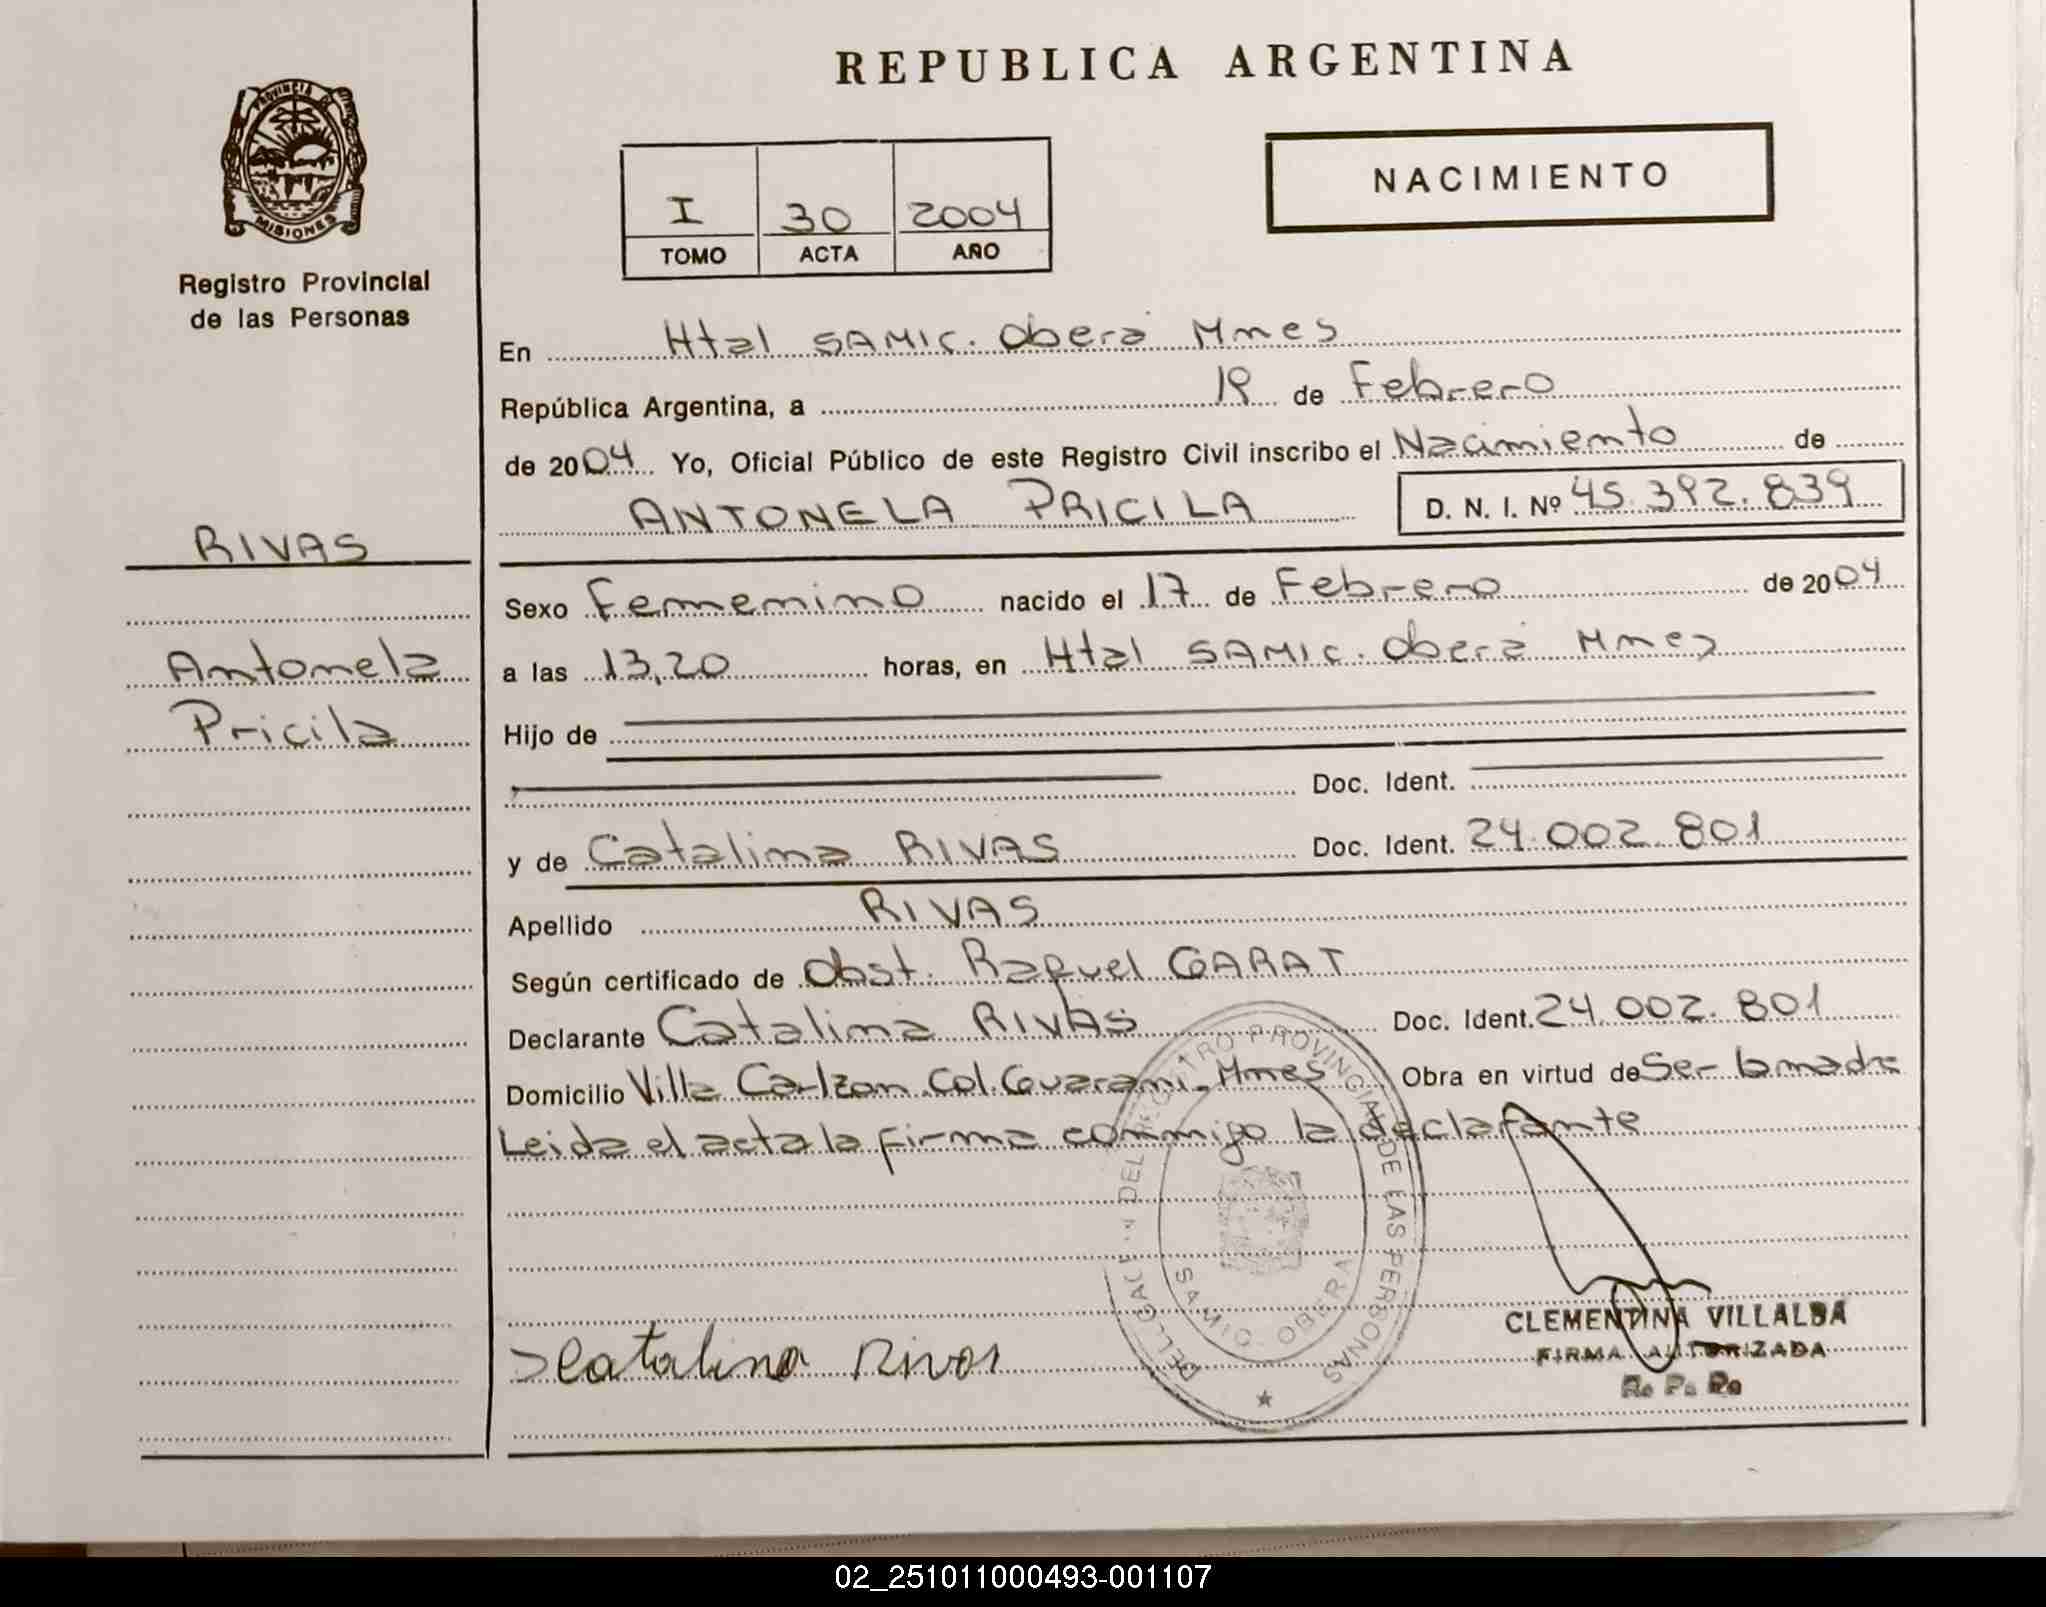 REPUBLICA ARGENTINA
PROVINCIA DE
MISIONES
Registro Provincial
de las Personas
I 30 2004
TOMO ACTA AÑO
NACIMIENTO
En Htal SAMIC. Oberá Mnes
República Argentina, a 19 de Febrero
de 2004 Yo, Oficial Público de este Registro Civil inscribo el Nacimiento de
ANTONELA PRICILA D. N. I. Nº 45.392.839
RIVAS
Antonela
Pricila
Sexo Femenino nacido el 17 de Febrero de 2004
a las 13,20 horas, en Htal SAMIC. Oberá Mnes
Hijo de
Doc. Ident.
y de Catalina RIVAS Doc. Ident. 24.002.801
Apellido RIVAS
Según certificado de Obst. Raquel GARAT
Declarante Catalina RIVAS Doc. Ident. 24.002.801
Domicilio Villa Carlzon Col. Guarani. Mnes Obra en virtud de Ser la madre
Leida el acta la firma conmigo la declarante
DEL REGISTRO PROVINCIAL DE LAS PERSONAS
OBERA
Catalina Rivas
CLEMENTINA VILLALBA
FIRMA AUTORIZADA
R. P. P.
02_251011000493-001107